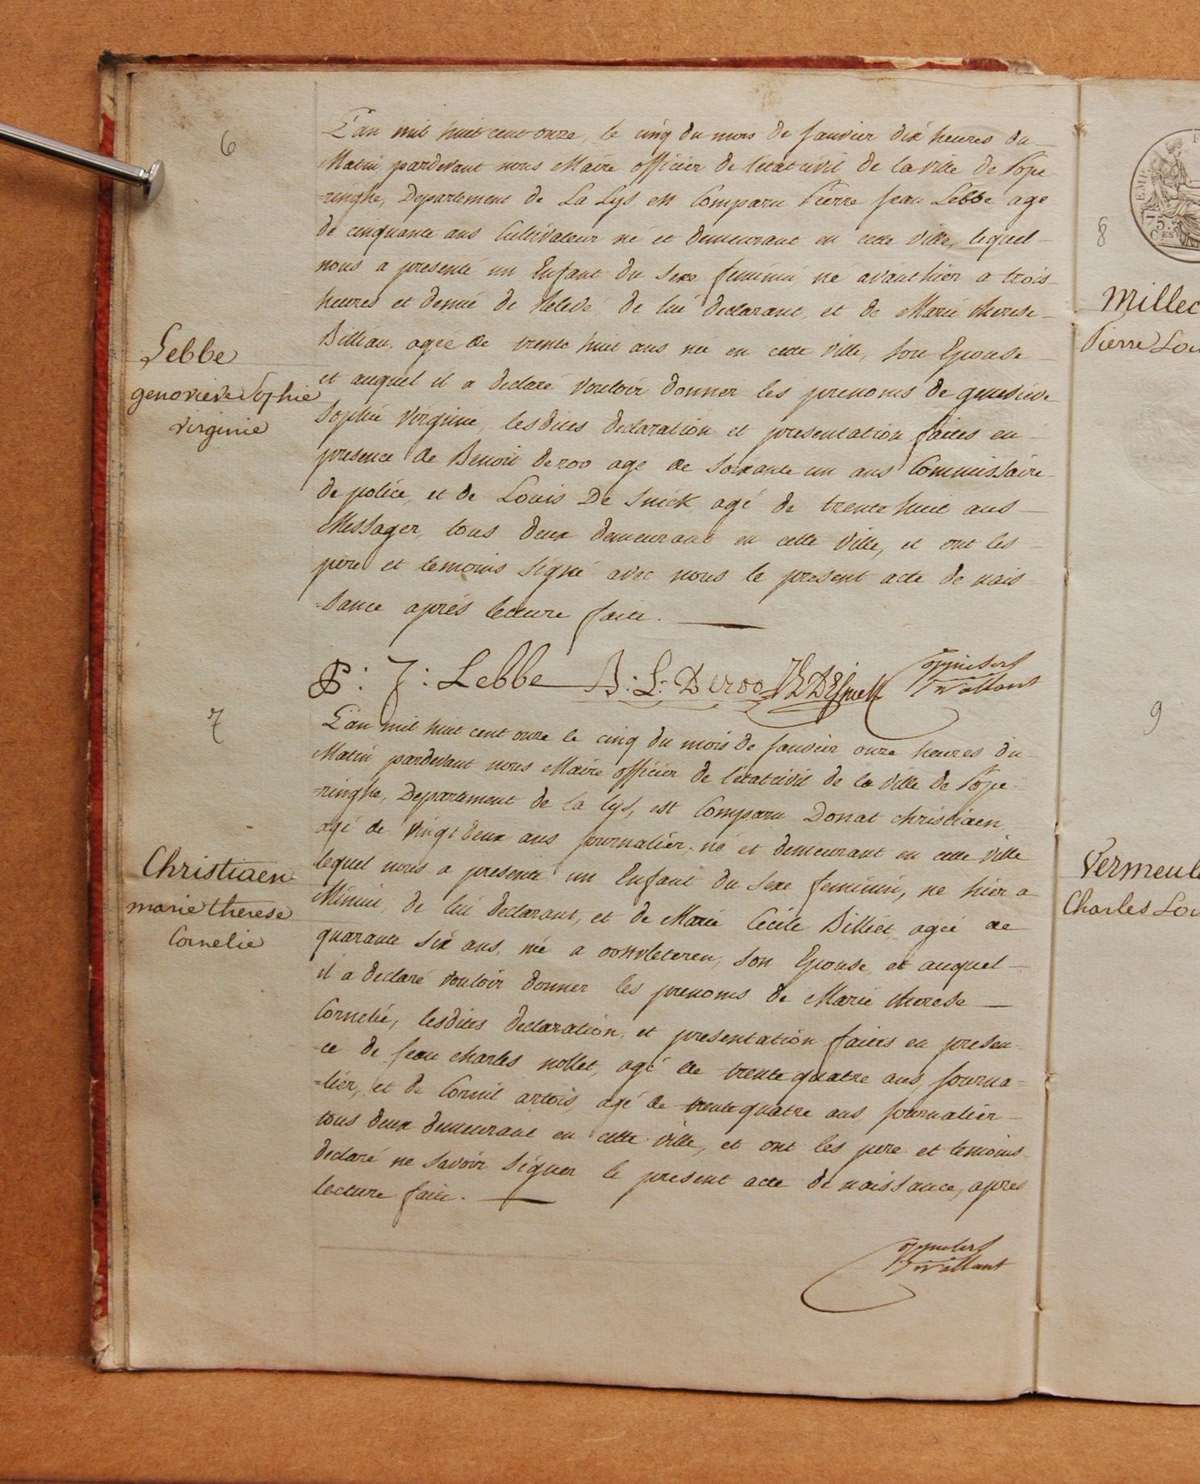 6
Lebbe
genovieve Sophie
virginie
L'an mil huit cent onze, le cinq du mois de Janvier dix heures du
Matin pardevant nous Maire officier de l'etat civil de la ville de Pope
ringhe, Departement de La Lys est Comparu Pierre Jean Lebbe age
de cinquante ans Cultivateur né et demeurant en cette ville, lequel
nous a presenté un Enfant du sexe feminin né avanthier a trois
heures et demie de relevé de lui declarant, et de Marie therese
Billiau, agee de trente huit ans née en cette ville, son Epouse
et auquel il a declaré vouloir donner les prenoms de genevieve
Sophie Virginie, lesdites declaration et presentation faites en
presence de Benoit Deroo age de soixante un ans Commissaire
de police, et de Louis De Snick agé de trente huit ans
Messager, tous deux demeurant en cette ville, et ont les
pere et temoins signé avec nous le present acte de nais
sance après lecture faite.
P: J: Lebbe B: L: Deroo
7
Christiaen
marie therese
Cornelie
L'an mil huit cent onze le cinq du mois de Janvier onze heures du
Matin pardevant nous Maire officier de l'etat civil de la ville de Pope
ringhe, Departement de la Lys, est Comparu Donat Christiaen
agé de vingt deux ans journalier, né et demeurant en cette ville
lequel nous a presenté un Enfant du sexe feminin, né hier a
Minuit, de lui declarant, et de Marie Cécile Billiet agée de
quarante six ans, née a oostvleteren, son Epouse, et auquel
il a declaré vouloir donner les prenoms de Marie therese
Cornelie, lesdites declaration, et presentation faites en presen
ce de Jean charles nollet, agé de trente quatre ans, Journa=
=lier, et de Cornil artois, agé de trente quatre ans journalier
tous deux demeurant en cette ville, et ont les pere et temoins
declaré ne savoir signer le present acte de naissance, apres
lecture faite.
8
Millec
Pierre Lou
9
Vermeule
Charles Lou